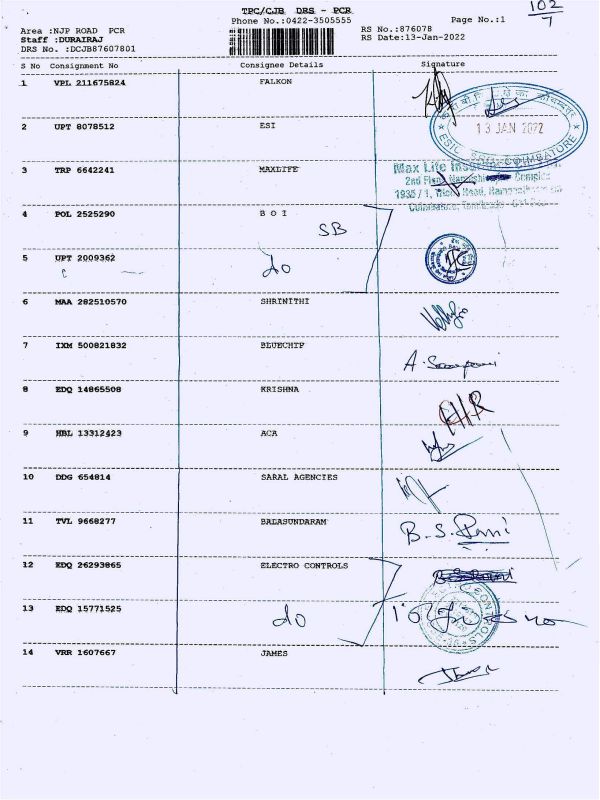 TPC/CJB DRS - PCR
102
7
Phone No.:0422-3505555
Page No.:1
Area :NJP ROAD PCR
RS No.:876078
Staff :DURAIRAJ
RS Date:13-Jan-2022
DRS No. :DCJB87607801
S No Consignment No Consignee Details Signature
1 VPL 211675824 FALKON
2 UPT 8078512 ESI
13 JAN 2022
COIMBATORE
3 TRP 6642241 MAXLIFE
Max Life
2nd Floor, Complex
1935 / 1, Road,
4 POL 2525290 B O I
SB
5 UPT 2009362 do
6 MAA 282510570 SHRINITHI
7 IXM 500821832 BLUECHIP
8 EDQ 14865508 KRISHNA
9 HBL 13312423 ACA
10 DDG 654814 SARAL AGENCIES
11 TVL 9668277 BALASUNDARAM
12 EDQ 26293865 ELECTRO CONTROLS
13 EDQ 15771525 do
14 VRR 1607667 JAMES